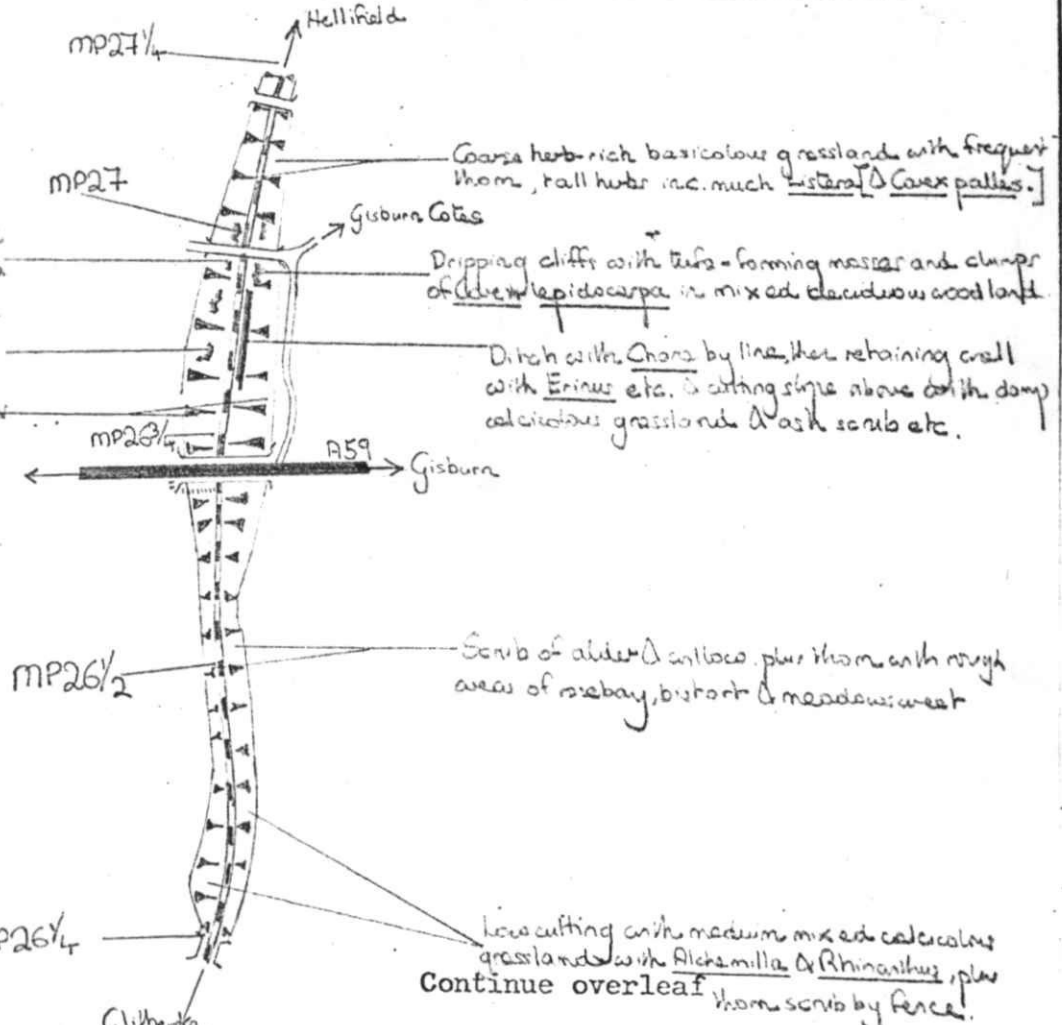 Hellifield
MP27¼
Coarse herb-rich basicolous grassland with frequent
thorn, tall herbs inc. much Listera [& Carex palles.]
MP27
Gisburn Cotes
Dripping cliffs with tufa-forming mosses and clumps
of Carex lepidocarpa in mixed deciduous woodland
Ditch with Chara by line, then retaining wall
with Erinus etc. & cutting slope above with damp
calcicolous grassland & ash scrub etc.
MP26¾
A59
Gisburn
Scrub of alder & willow, plus thorn with rough
areas of rosebay, bistort & meadowsweet
MP26½
Low cutting with medium mixed calcicolous
grassland with Alchemilla & Rhinanthus, plus
thorn scrub by fence.
P26¼
Continue overleaf